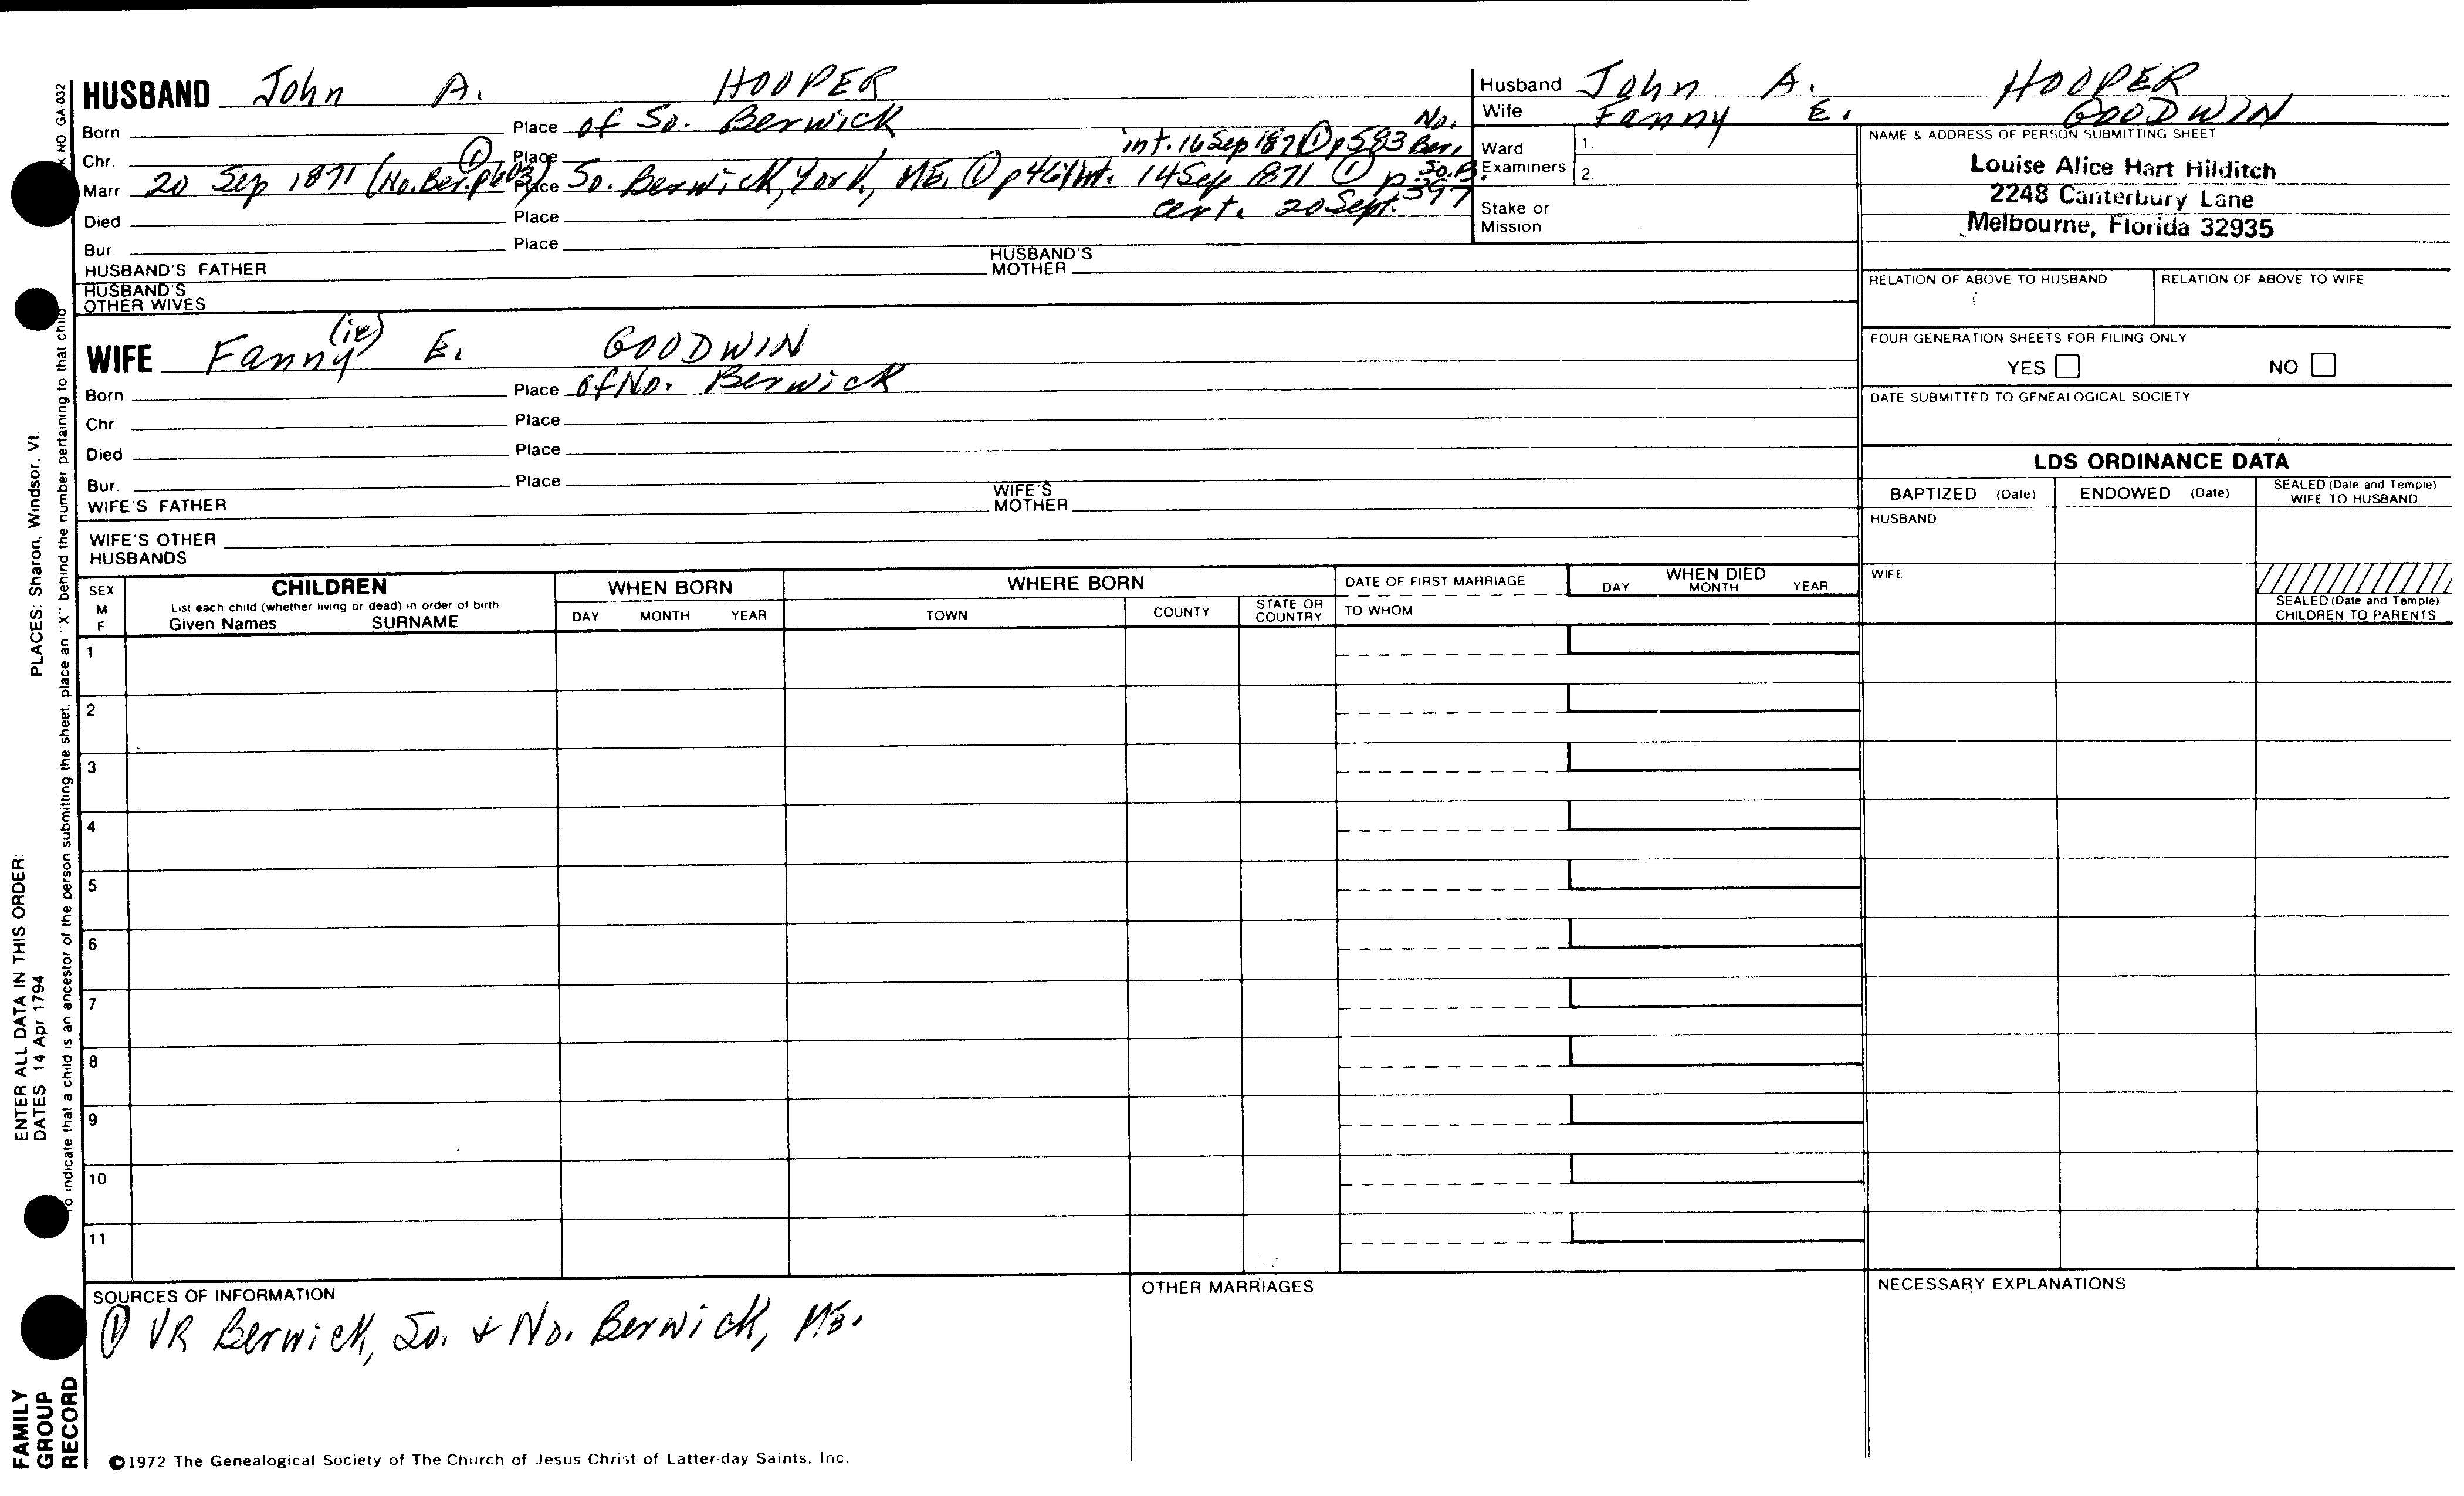 HUSBAND John A. HOOPER
Born Place of So. Berwick
Chr. Place int. 16 Sep 1871 ① p583 No. Ber.
Marr. 20 Sep 1871 (No. Ber. p603) ① Place So. Berwick, York, ME. ① p461 Int. 14 Sep 1871 ① So. B. p397
Died Place cert. 20 Sept.
Bur. Place
HUSBAND'S FATHER HUSBAND'S MOTHER
HUSBAND'S OTHER WIVES
WIFE Fanny (ie) E. GOODWIN
Born Place of No. Berwick
Chr. Place
Died Place
Bur. Place
WIFE'S FATHER WIFE'S MOTHER
WIFE'S OTHER HUSBANDS
Husband John A. HOOPER
Wife Fanny E. GOODWIN
Ward Examiners: 1. 2.
Stake or Mission
NAME & ADDRESS OF PERSON SUBMITTING SHEET
Louise Alice Hart Hilditch
2248 Canterbury Lane
Melbourne, Florida 32935
RELATION OF ABOVE TO HUSBAND RELATION OF ABOVE TO WIFE
FOUR GENERATION SHEETS FOR FILING ONLY
YES NO
DATE SUBMITTED TO GENEALOGICAL SOCIETY
LDS ORDINANCE DATA
BAPTIZED (Date) ENDOWED (Date) SEALED (Date and Temple) WIFE TO HUSBAND
HUSBAND
WIFE
SEALED (Date and Temple) CHILDREN TO PARENTS
SEX M F
CHILDREN
List each child (whether living or dead) in order of birth
Given Names SURNAME
WHEN BORN
DAY MONTH YEAR
WHERE BORN
TOWN COUNTY STATE OR COUNTRY
DATE OF FIRST MARRIAGE
TO WHOM
WHEN DIED
DAY MONTH YEAR
1
2
3
4
5
6
7
8
9
10
11
SOURCES OF INFORMATION
① VR Berwick, So. & No. Berwick, ME.
OTHER MARRIAGES
NECESSARY EXPLANATIONS
©1972 The Genealogical Society of The Church of Jesus Christ of Latter-day Saints, Inc.
NO GA-032
To indicate that a child is an ancestor of the person submitting the sheet, place an "X" behind the number pertaining to that child
PLACES: Sharon, Windsor, Vt.
ENTER ALL DATA IN THIS ORDER:
DATES: 14 Apr 1794
FAMILY
GROUP
RECORD